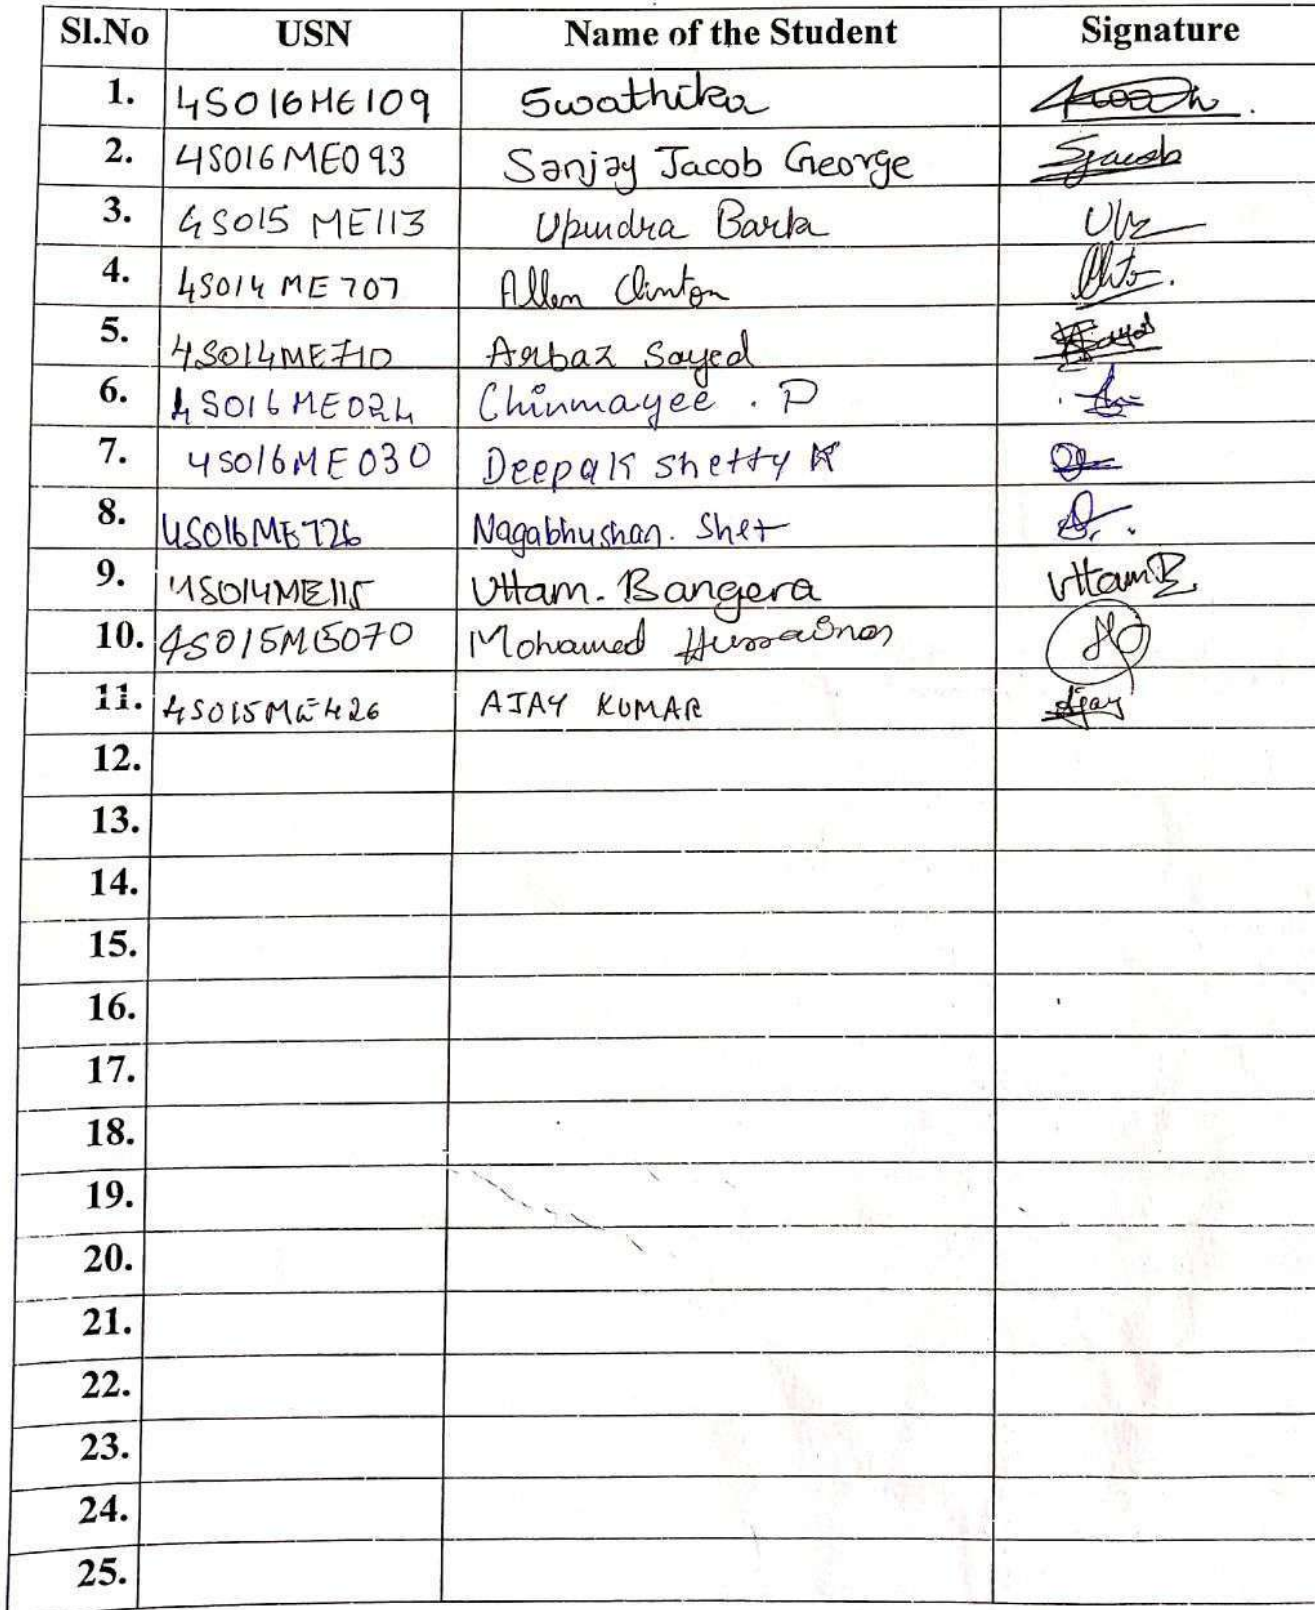 Sl.No USN Name of the Student Signature
1. 4SO16ME109 Swathika
2. 4SO16ME093 Sanjay Jacob George Sjacob
3. 4SO15 ME113 Upendra Barka
4. 4SO14 ME 707 Allen Clinton
5. 4SO14ME710 Arbaz Sayed
6. 4SO16ME024 Chinmayee . P
7. 4SO16ME030 Deepak Shetty K
8. 4SO16ME726 Nagabhushan. Shet
9. 4SO14ME115 Uttam. Bangera Uttam B
10. 4SO15ME070 Mohamed
11. 4SO15ME426 AJAY KUMAR Ajay
12.
13.
14.
15.
16.
17.
18.
19.
20.
21.
22.
23.
24.
25.